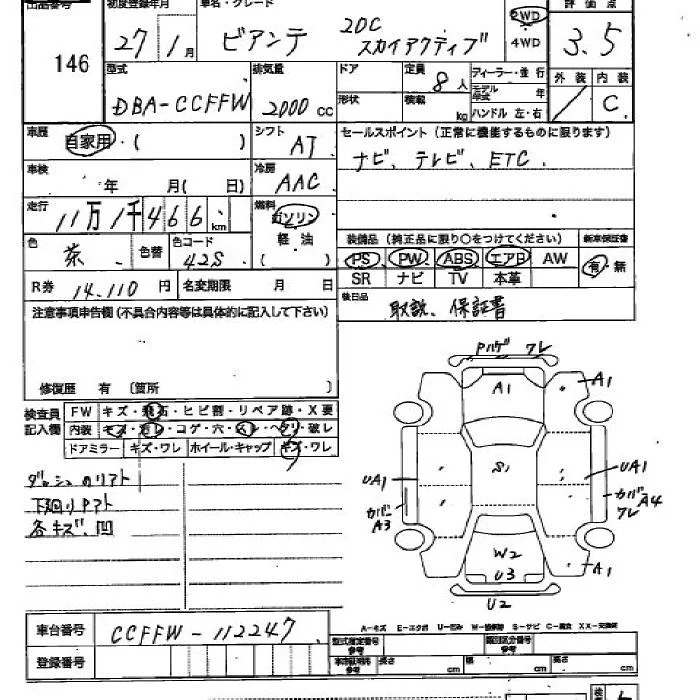 出品番号 初度登録年月 車名・グレード 評価点
146 27 / 1月 ビアンテ 20C スカイアクティブ 2WD 4WD 3.5
型式 排気量 ドア 定員 フィーラー・並行 外装 内装
DBA-CCFFW 2000 cc 8人 モデル年式 年
形状 積載 kg ハンドル 左・右 / C
車歴 自家用・( ) シフト AT セールスポイント (正常に機能するものに限ります)
ナビ、テレビ、ETC.
車検 年 月( 日) 冷房 AAC
走行 11万1千466km 燃料 ガソリン 軽油 ( )
色 茶 色替 色コード 42S
装備品 (純正品に限り○をつけてください) 新車保証書
PS PW ABS エアB AW 有・無
SR ナビ TV 本革
R券 14.110円 名変期限 月 日 後日品 取説、保証書
注意事項申告欄(不具合内容等は具体的に記入して下さい)
修復歴 有 〔箇所 〕
検査員記入欄 FW キズ・飛石・ヒビ割・リペア跡・X要
内装 キズ・汚レ・コゲ・穴・スレ・ヘタリ・破レ
ドアミラー キズ・ワレ ホイール・キャップ キズ・ワレ
下廻り
各キズ、凹
ワレ
A1 A1
S1
UA1 UA1
A3
A4
ワレ
W2
U3 A1
U2
A-キズ E-エクボ U-凹み S-サビ C-腐食 XX-交換済
車台番号 CCFFW-112247 型式指定番号 参考 類別区分番号 参考
登録番号 参考 長さ cm 幅 cm 高さ cm